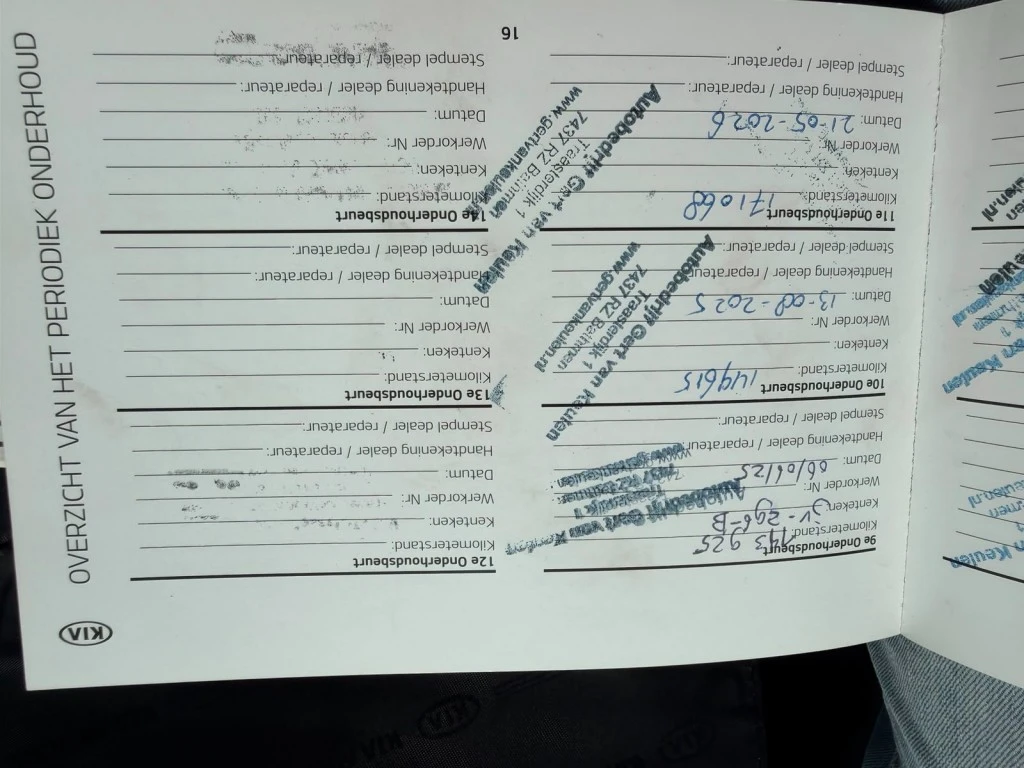 KIA
OVERZICHT VAN HET PERIODIEK ONDERHOUD
9e Onderhoudsbeurt
Kilometerstand: 143925
Kenteken: JV-296-B
Werkorder Nr:
Datum: 06/06/25
Handtekening dealer / reparateur:
Stempel dealer / reparateur:
Autobedrijf Gert van Keulen
Traasterdijk 1
7437 RZ Bathmen
www.gertvankeulen.nl
10e Onderhoudsbeurt
Kilometerstand: 149615
Kenteken:
Werkorder Nr:
Datum: 13-08-2025
Handtekening dealer / reparateur:
Stempel dealer / reparateur:
Autobedrijf Gert van Keulen
Traasterdijk 1
7437 RZ Bathmen
www.gertvankeulen.nl
11e Onderhoudsbeurt
Kilometerstand: 171068
Kenteken:
Werkorder Nr:
Datum: 21-05-2026
Handtekening dealer / reparateur:
Stempel dealer / reparateur:
Autobedrijf Gert van Keulen
Traasterdijk 1
7437 RZ Bathmen
www.gertvankeulen.nl
12e Onderhoudsbeurt
Kilometerstand:
Kenteken:
Werkorder Nr:
Datum:
Handtekening dealer / reparateur:
Stempel dealer / reparateur:
13e Onderhoudsbeurt
Kilometerstand:
Kenteken:
Werkorder Nr:
Datum:
Handtekening dealer / reparateur:
Stempel dealer / reparateur:
14e Onderhoudsbeurt
Kilometerstand:
Kenteken:
Werkorder Nr:
Datum:
Handtekening dealer / reparateur:
Stempel dealer / reparateur:
16
Keulen
KIA